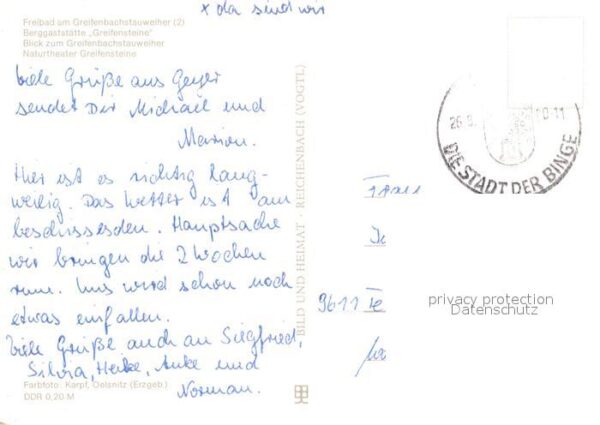 x da sind wir
Freibad am Greifenbachstauweiher (2)
Berggaststätte „Greifensteine"
Blick zum Greifenbachstauweiher
Naturtheater Greifensteine
Viele Grüße aus Geyer
sendet Dir Michael und
Marion.
Hier ist es richtig lang-
weilig. Das Wetter ist am
beschissesden. Hauptsache
wir bringen die 2 Wochen
rum. Uns wird schon noch
etwas einfallen.
Viele Grüße auch an Siegfried,
Silvia, Heike, Anke und
Norman.
Farbfoto: Karpf, Oelsnitz (Erzgeb.)
DDR 0,20 M
BILD UND HEIMAT · REICHENBACH (VOGTL)
10-11
DIE STADT DER BINGE
Frau
9611
privacy protection
Datenschutz